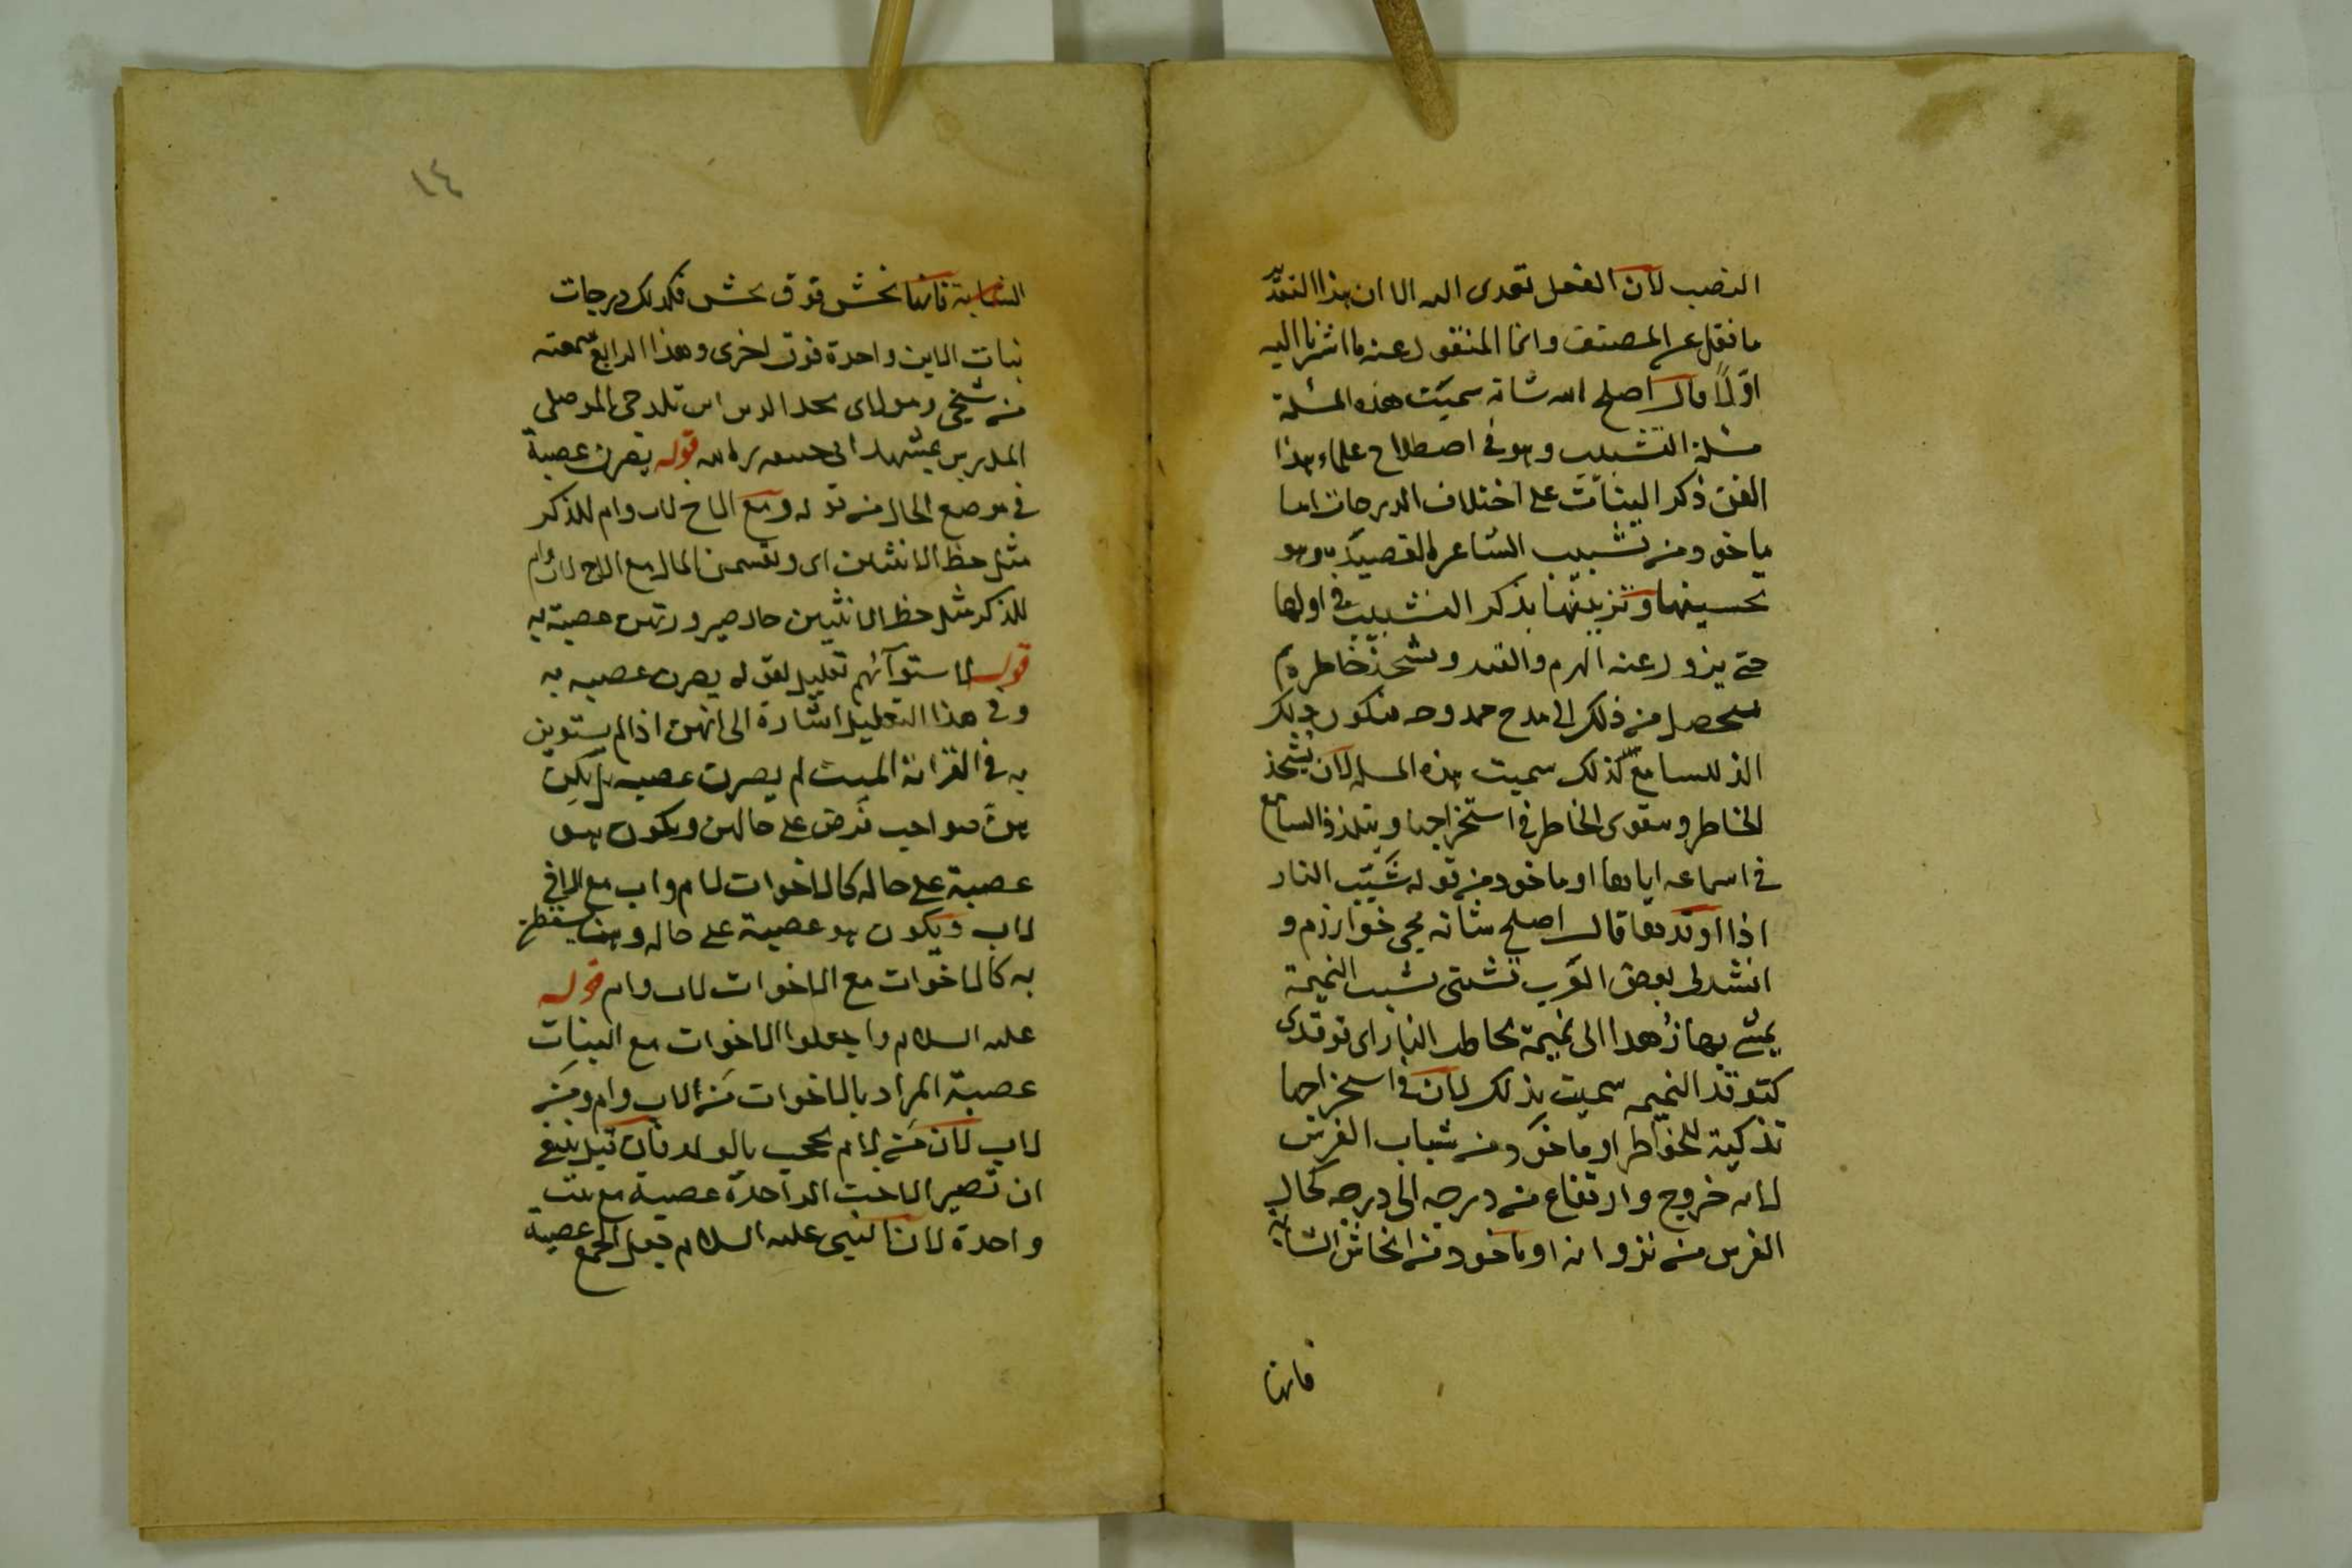 النصب لان الفعل تعدى اليه الا ان هذا التقدير
ما نقل عن المصنف وانما المنقول عنه ما اشرنا اليه
اوّلًا قال اصلح الله شانه سميت هذه المسئلة
مسئلة التشبيب وهو في اصطلاح علماء هذا
الفن ذكر البنات على اختلاف الدرجات اما
ماخوذ من تشبيب الشاعر القصيدة وهو
تحسينها وتزيينها بذكر التشبيب في اولها
حتى يزول عنه الهرم و ويشحذ خاطره ثم
يتحصل من ذلك الى مدح ممدوحه فيكون ذلك
الذ للسامع كذلك سميت هذه المسئلة لان يشحذ
الخاطر ويتقوى الخاطر في استخراجها ويتلذذ السامع
في اسماعه اياها او ماخوذ من قوله شَبَّب النار
اذا اوقدها قال اصلح شانه مجى خوارزم و
انشد لي بعض العرب تشبب النميمة
يمشي بها زهدا الى نميمة النار اي توقد
كتوقد النميمه سميت بذلك لان في استخراجها
تذكية للخواطر او ماخوذ من شباب الفرس
لانه خروج وارتفاع من درجه الى درجه كحال
الفرس من نزوانه او ماخوذ من الشبابة
فانها
الشبابة فانها بخش فوق بخش فكذلك درجات
بنات الابن واحدة فوق اخرى وهذا الرابع سمعته
من شيخي ومولاي مجد الدين ابن بلدجي الموصلي
المدرس بمشهد ابي حنيفه رحمه الله قوله يصرن عصبة
في موضع الحال من قوله ومع الاخ لاب وام للذكر
مثل حظ الانثيين اى ويقسمن المال مع الاخ لاب وام
للذكر مثل حظ الانثيين حال صيرورتهن عصبة به
قوله لاستوآئهم تعليل لقوله يصرن عصبه به
وفي هذا التعليل اشارة الى انهن اذا لم يستوين
به في القرابة الميت لم يصرن عصبه بل يكون
هن صواحب فرض على حالهن ويكون هو
عصبة على حاله كالاخوات لام واب مع الاخ
لاب ويكون هو عصبة على حاله وهن يسقطن
به كالاخوات مع الاخوات لاب وام قوله
عليه السلام واجعلوا الاخوات مع البنات
عصبة المراد بالاخوات من الاب وام ومن
لاب لان من لام يحجب بالولد فان قيل ينبغي
ان تصير الاخت الواحدة عصبة مع بنت
واحدة لان النبي عليه السلام جعل الجمع عصبة
١٤